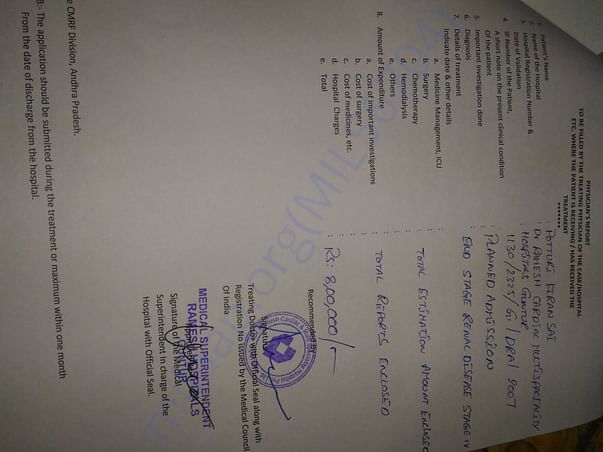 PHYSICIAN'S REPORT
TO BE FILLED BY THE TREATING PHYSICIAN OF THE CASE/HOSPITAL
ETC. WHERE THE PATIENT IS RECEIVING / HAS RECEIVED THE
TREATMENT
*******
1. Patient's Name : POTTURI KIRAN SAI
2. Name of the Hospital : Dr RAMESH CARDIAC MULTISPECIALITY
3. Hospital Registration Number & : HOSPITALS GUNTUR
Date of Validation
4. IP Number of the Patient,
A short note on the present clinical condition : PLANNED ADMISSION
Of the patient
5. Important investigation done
6. Diagnosis : END STAGE RENAL DISEASE STAGE IV
7. Details of treatment
Indicate date & other details
a. Medicine Management, ICU
b. Surgery : TOTAL ESTIMATION AMOUNT ENCLOSED
c. Chemotherapy
d. Hemodialysis
e. Others
8. Amount of Expenditure : TOTAL REPORTS ENCLOSED
a. Cost of important investigations
b. Cost of surgery
c. Cost of medicines, etc.
d. Hospital Charges
e. Total : Rs: 8,00,000/-
Recommended By
Signature
Treating Doctor with Official Seal along with
Registration No issued by the Medical Council
Of India
MEDICAL SUPERINTENDENT
RAMESH HOSPITALS
GUNTUR
Signature of the Medical
Superintendent In charge of the
Hospital with Official Seal.
e CMRF Division, Andhra Pradesh.
B:- The application should be submitted during the treatment or maximum within one month
From the date of discharge from the hospital.